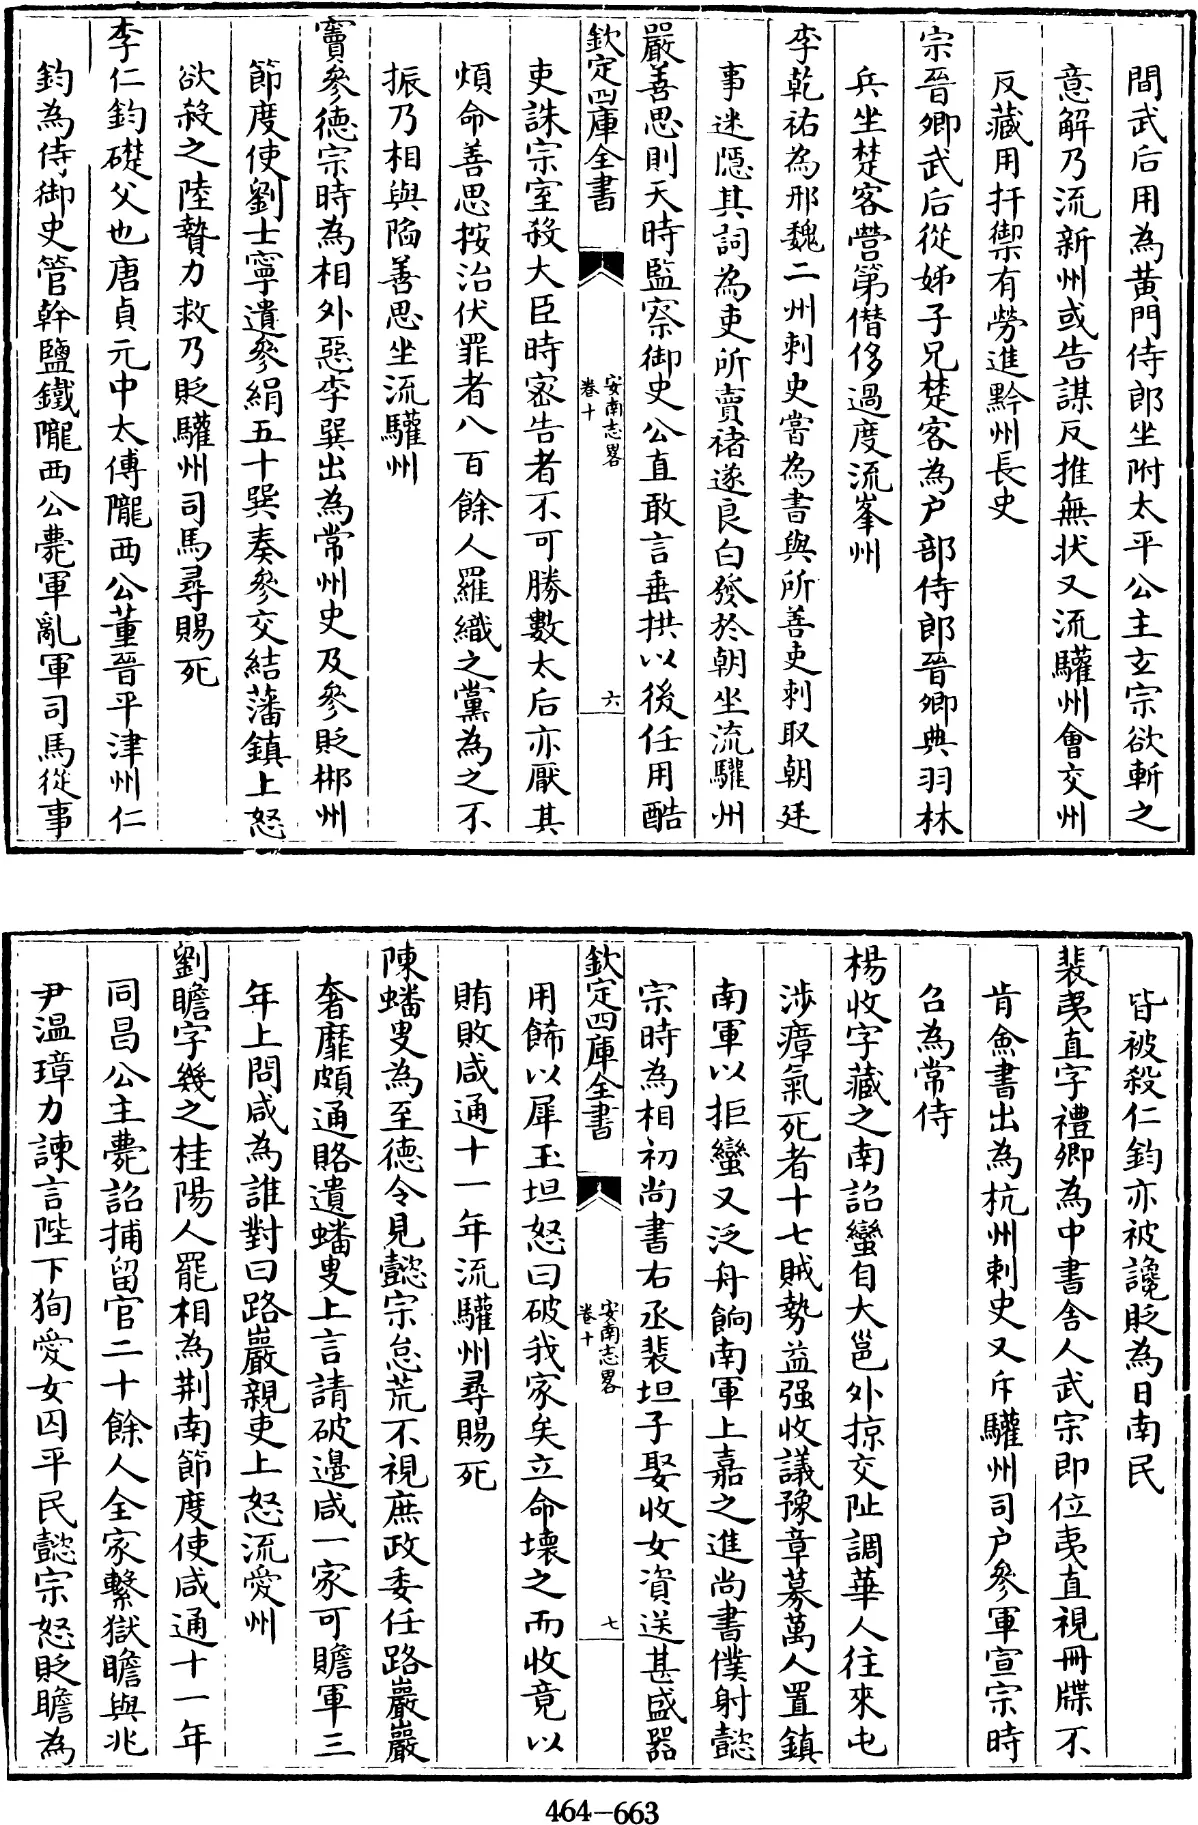 間武后用為黄門侍郎坐附太平公主玄宗欲斬之
意解乃流新州或告謀反推無状又流驩州㑹交州
反藏用扞禦有勞進黔州長史
宗晉卿武后從姊子兄楚客為户部侍郎晉卿典羽林
兵坐楚客營第僣侈過度流峯州
李乾祐為邢魏二州刺史嘗為書與所善吏刺取朝廷
事迷隱其詞為吏所賣褚遂良白發於朝坐流驩州
嚴善思則天時監察御史公直敢言垂拱以後任用酷
欽定四庫全書
安南志畧
卷十
六
吏誅宗室殺大臣時宻告者不可勝數太后亦厭其
煩命善思按治伏罪者八百餘人羅織之黨為之不
振乃相與陥善思坐流驩州
竇參德宗時為相外惡李巽出為常州史及參貶郴州
節度使劉士寧遺參絹五十巽奏參交結藩鎮上怒
欲殺之陸贄力救乃貶驩州司馬尋賜死
李仁鈞礎父也唐貞元中太傅隴西公董晉平津州仁
鈞為侍御史管幹鹽鐵隴西公薨軍亂軍司馬從事
皆被殺仁鈞亦被讒貶為日南民
裴夷直字禮卿為中書舍人武宗即位夷直視冊牒不
肯僉書出為杭州刺史又斥驩州司户參軍宣宗時
召為常侍
楊收字藏之南詔蠻自大邕外掠交阯調華人往來屯
涉瘴氣死者十七賊勢益强收議豫章募萬人置鎮
南軍以拒蠻又泛舟餉南軍上嘉之進尚書僕射懿
宗時為相初尚書右丞裴坦子娶收女資送甚盛器
欽定四庫全書
安南志畧
卷十
七
用飾以犀玉坦怒曰破我家矣立命壊之而收竟以
賄敗咸通十一年流驩州尋賜死
陳蟠叟為至德令見懿宗怠荒不視庶政委任路巖巖
奢靡頗通賂遺蟠叟上言請破邊咸一家可贍軍三
年上問咸為誰對曰路巖親吏上怒流愛州
劉瞻字幾之桂陽人罷相為荆南節度使咸通十一年
同昌公主薨詔捕留官二十餘人全家繫獄瞻與兆
尹温璋力諫言陛下狥愛女囚平民懿宗怒貶瞻為
464-663